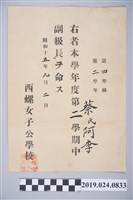 第四學年
第二學年
蔡氏阿李
右者本學年度第二學期中
副級長ヲ命ス
昭和十五年九月二日
西螺女子公學校
2019.024.0833